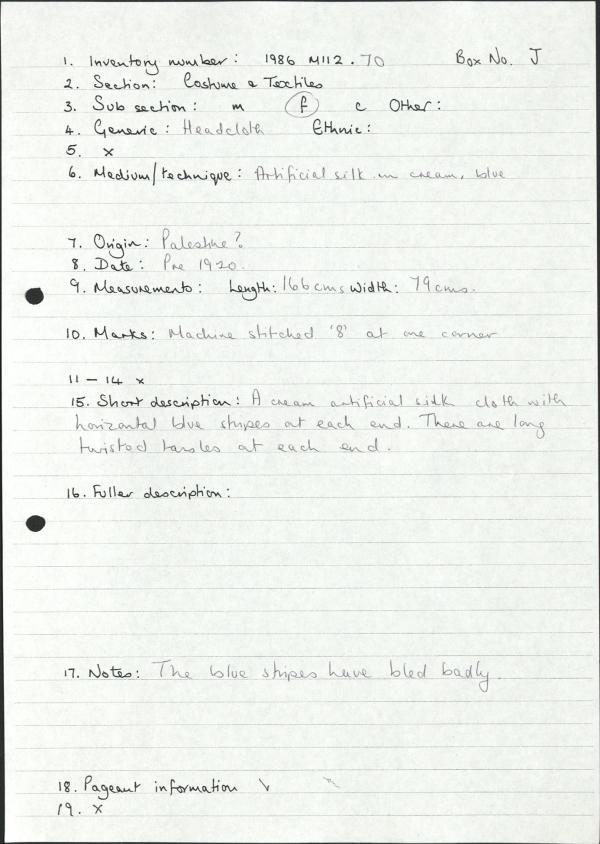 1. Inventory number: 1986 M112.70 Box No. J
2. Section: Costume & Textiles
3. Sub section: m f c Other:
4. Generic: Headcloth Ethnic:
5. x
6. Medium/technique: Artificial silk in cream, blue
7. Origin: Palestine?
8. Date: Pre 1920.
9. Measurements: Length: 166cms Width: 79cms.
10. Marks: Machine stitched '8' at one corner
11 – 14 x
15. Short description: A cream artificial silk cloth with
horizontal blue stripes at each end. There are long
twisted tassles at each end.
16. Fuller description:
17. Notes: The blue stripes have bled badly.
18. Pageant information
19. x